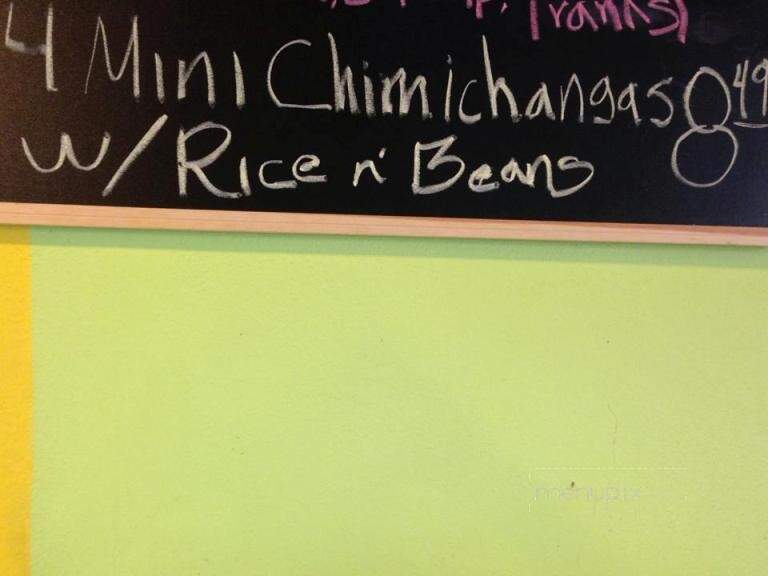 4 Mini Chimichangas 8 49
w/ Rice n' Beans
menupix